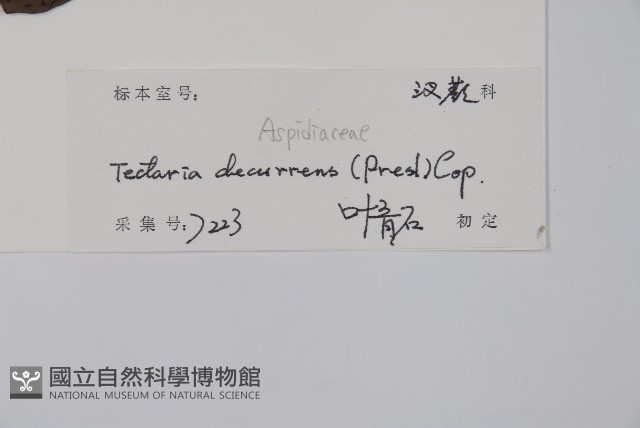 标本室号: 汉蕨科
Aspidiaceae
Tectaria decurrens (Presl) Cop.
采集号: 7223 叶青石 初定
國立自然科學博物館
NATIONAL MUSEUM OF NATURAL SCIENCE